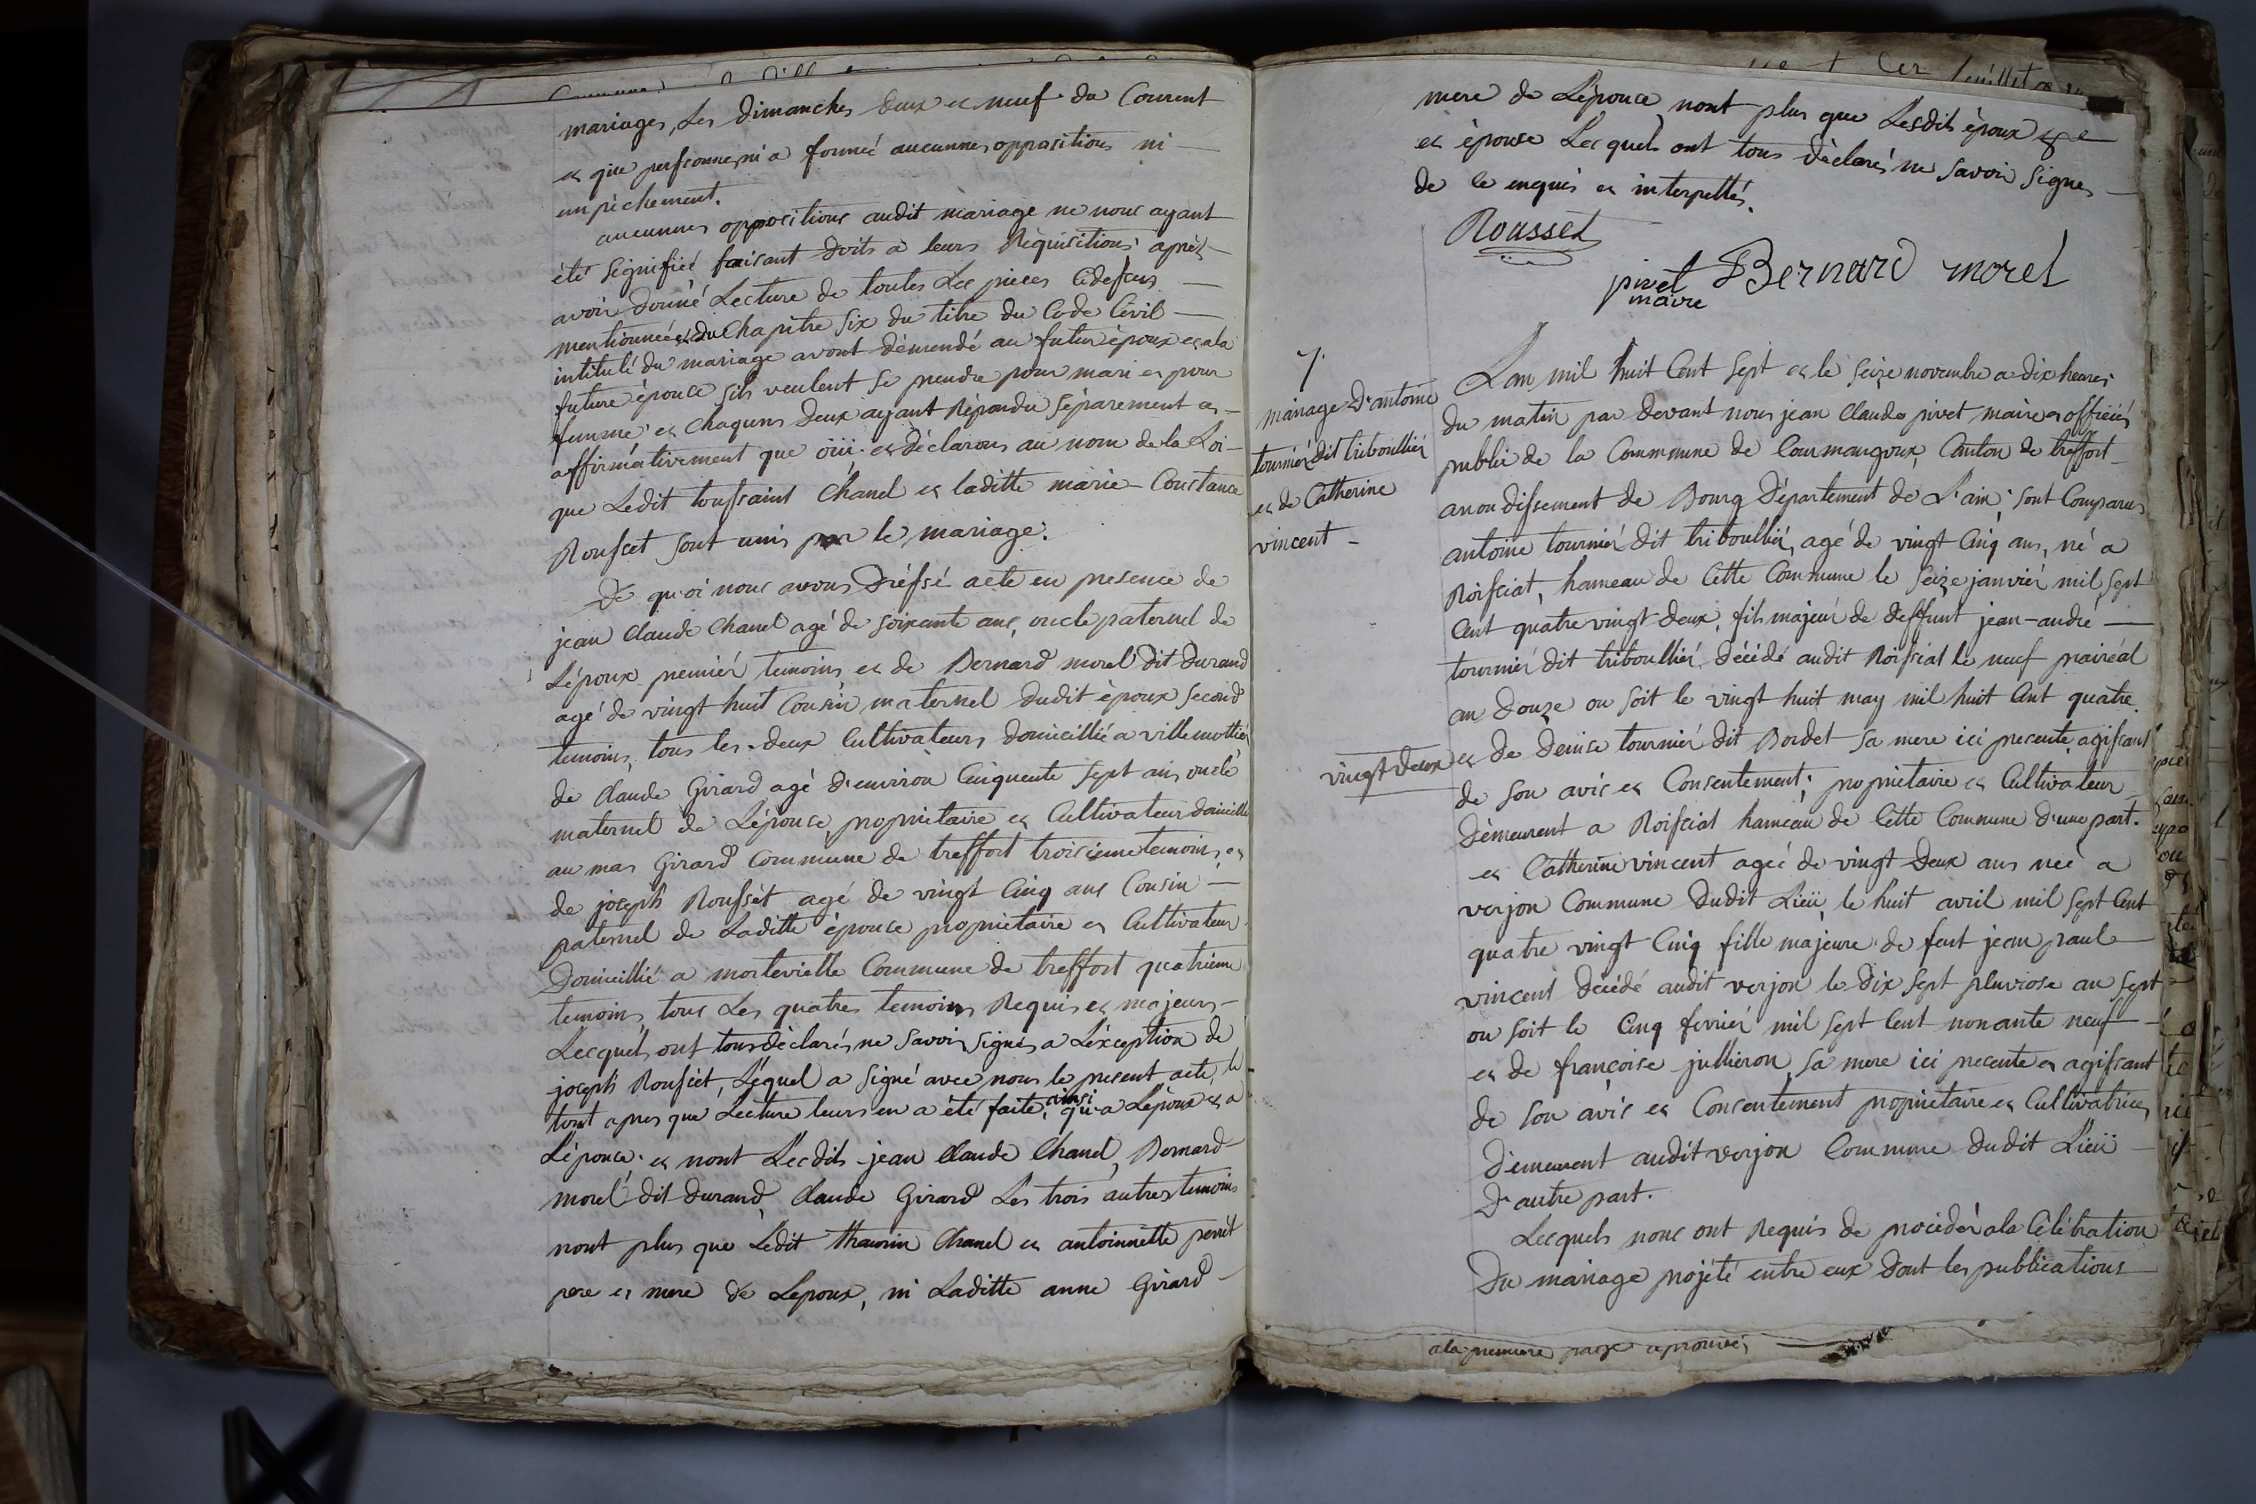 mariages, Les dimanches deux et neuf du Courent
et que personnes ni a formée aucunnes oppositions ni
empêchement.
aucunnes oppositions audit mariage ne nous ayant
été Signifiée faisant droits a leurs Réquisitions après
avoir donné Lecture de toutes Les pieces cidessus
mentionnées et du Chapitre Six du titre du Code Civil
intitulé du mariage avont démendé au futur époux et a la
future épouse sils veulent se prendre pour mari et pour
femme et chaquns deux ayant Répondu séparement et
affirmativement que oüi. et déclarons au nom de la Loi
que Ledit toussaint Chanel et laditte marie-Constance
Rousset sont unis par le mariage.
De quoi nous avons Dréssé acte en presence de
jean Claude Chanel agé de soixante ans, oncle paternel de
Lépoux premiér temoins, et de Bernard morel dit Durand
agé de vingt huit Cousin maternel dudit époux second
temoins, tous les deux Cultivateurs domicillié a villemottiér
de Claude Girard agé d'environ Cinquente Sept ans oncle
maternel de Lépouse, propriétaire et Cultivateur domicillié
au mas Girard Commune de treffort troisieme temoins, et
de joseph Roussét agé de vingt Cinq ans Cousin
paternel de Laditte épouse propriétaire et Cultivateur
Domicillié a mortevielle Commune de treffort quatrieme
temoins, tous Les quatres temoins Requis et majeurs
Lesquels ont tous déclarés ne savoir signés a Léxception de
joseph Roussét, Léquel a signé avec nous le present acte, le
tout apres que Lecture leurs en a été faite, ainsi qu'a Lépoux et a
Lépouse. et nont Lesdits jean Claude Chanel, Bernard
morel dit durand, Claude Girard Les trois autres temoins
nont plus que Ledit Chanel et antoinnette
pere et mere de Lépoux, ni Laditte anne Girard
mere de Lépouce, nont plus que Lesdits époux
et épouse Lesquels ont tous déclarés ne savoir signes
de ce enquis et interpellés.
Rousset
pivet Bernard morel
maire
7.
mariage D'antoine
tourniér dit triboulliér
et de Catherine
vincent
Lan mil huit Cent Sept et le Seize novembre a dix heures
du matin par devant nous jean Claude pivet maire et officiér
public de la Commune de Courmangoux, Canton de treffort
arrondissement de Bourg Département de L'ain; sont Comparus
antoine tourniér dit triboulliér, agé de vingt Cinq ans, né a
Roissiat, hameau de Cette Commune le seize janviér mil sept
Cent quatre vingt deux, fils majeur de deffunt jean-andré
tourniér dit triboulliér décédé audit Roissiat le neuf prairéal
an douze ou soit le vingt huit may mil huit Cent quatre.
vingt deux
et de Denise tourniér dit Bordet sa mere ici presente, agissant
de son avis et Consentement; propriétaire et Cultivateur
Dèmeurent a Roissiat hameau de Cette Commune d'une part.
et Catherine vincent ageé de vingt deux ans neé a
verjon Commune Dudit Lieü, le huit avril mil Sept Cent
quatre vingt Cinq fille majeure de feut jean paul
vincent décédé audit verjon le Dix Sept pluviose an Sept
ou soit le Cinq fevriér mil sept Cent nonante neuf
et de françoise jullieron, sa mere ici presente et agissant
de son avis et Consentement propriétaire et Cultivatrice,
Dèmeurent audit verjon Commune Dudit Lieü
D'autre part.
Lesquels nous ont Requis de procéder a la Célébration
Du mariage projété entre eux dont les publications
a la premiere page aprouvé